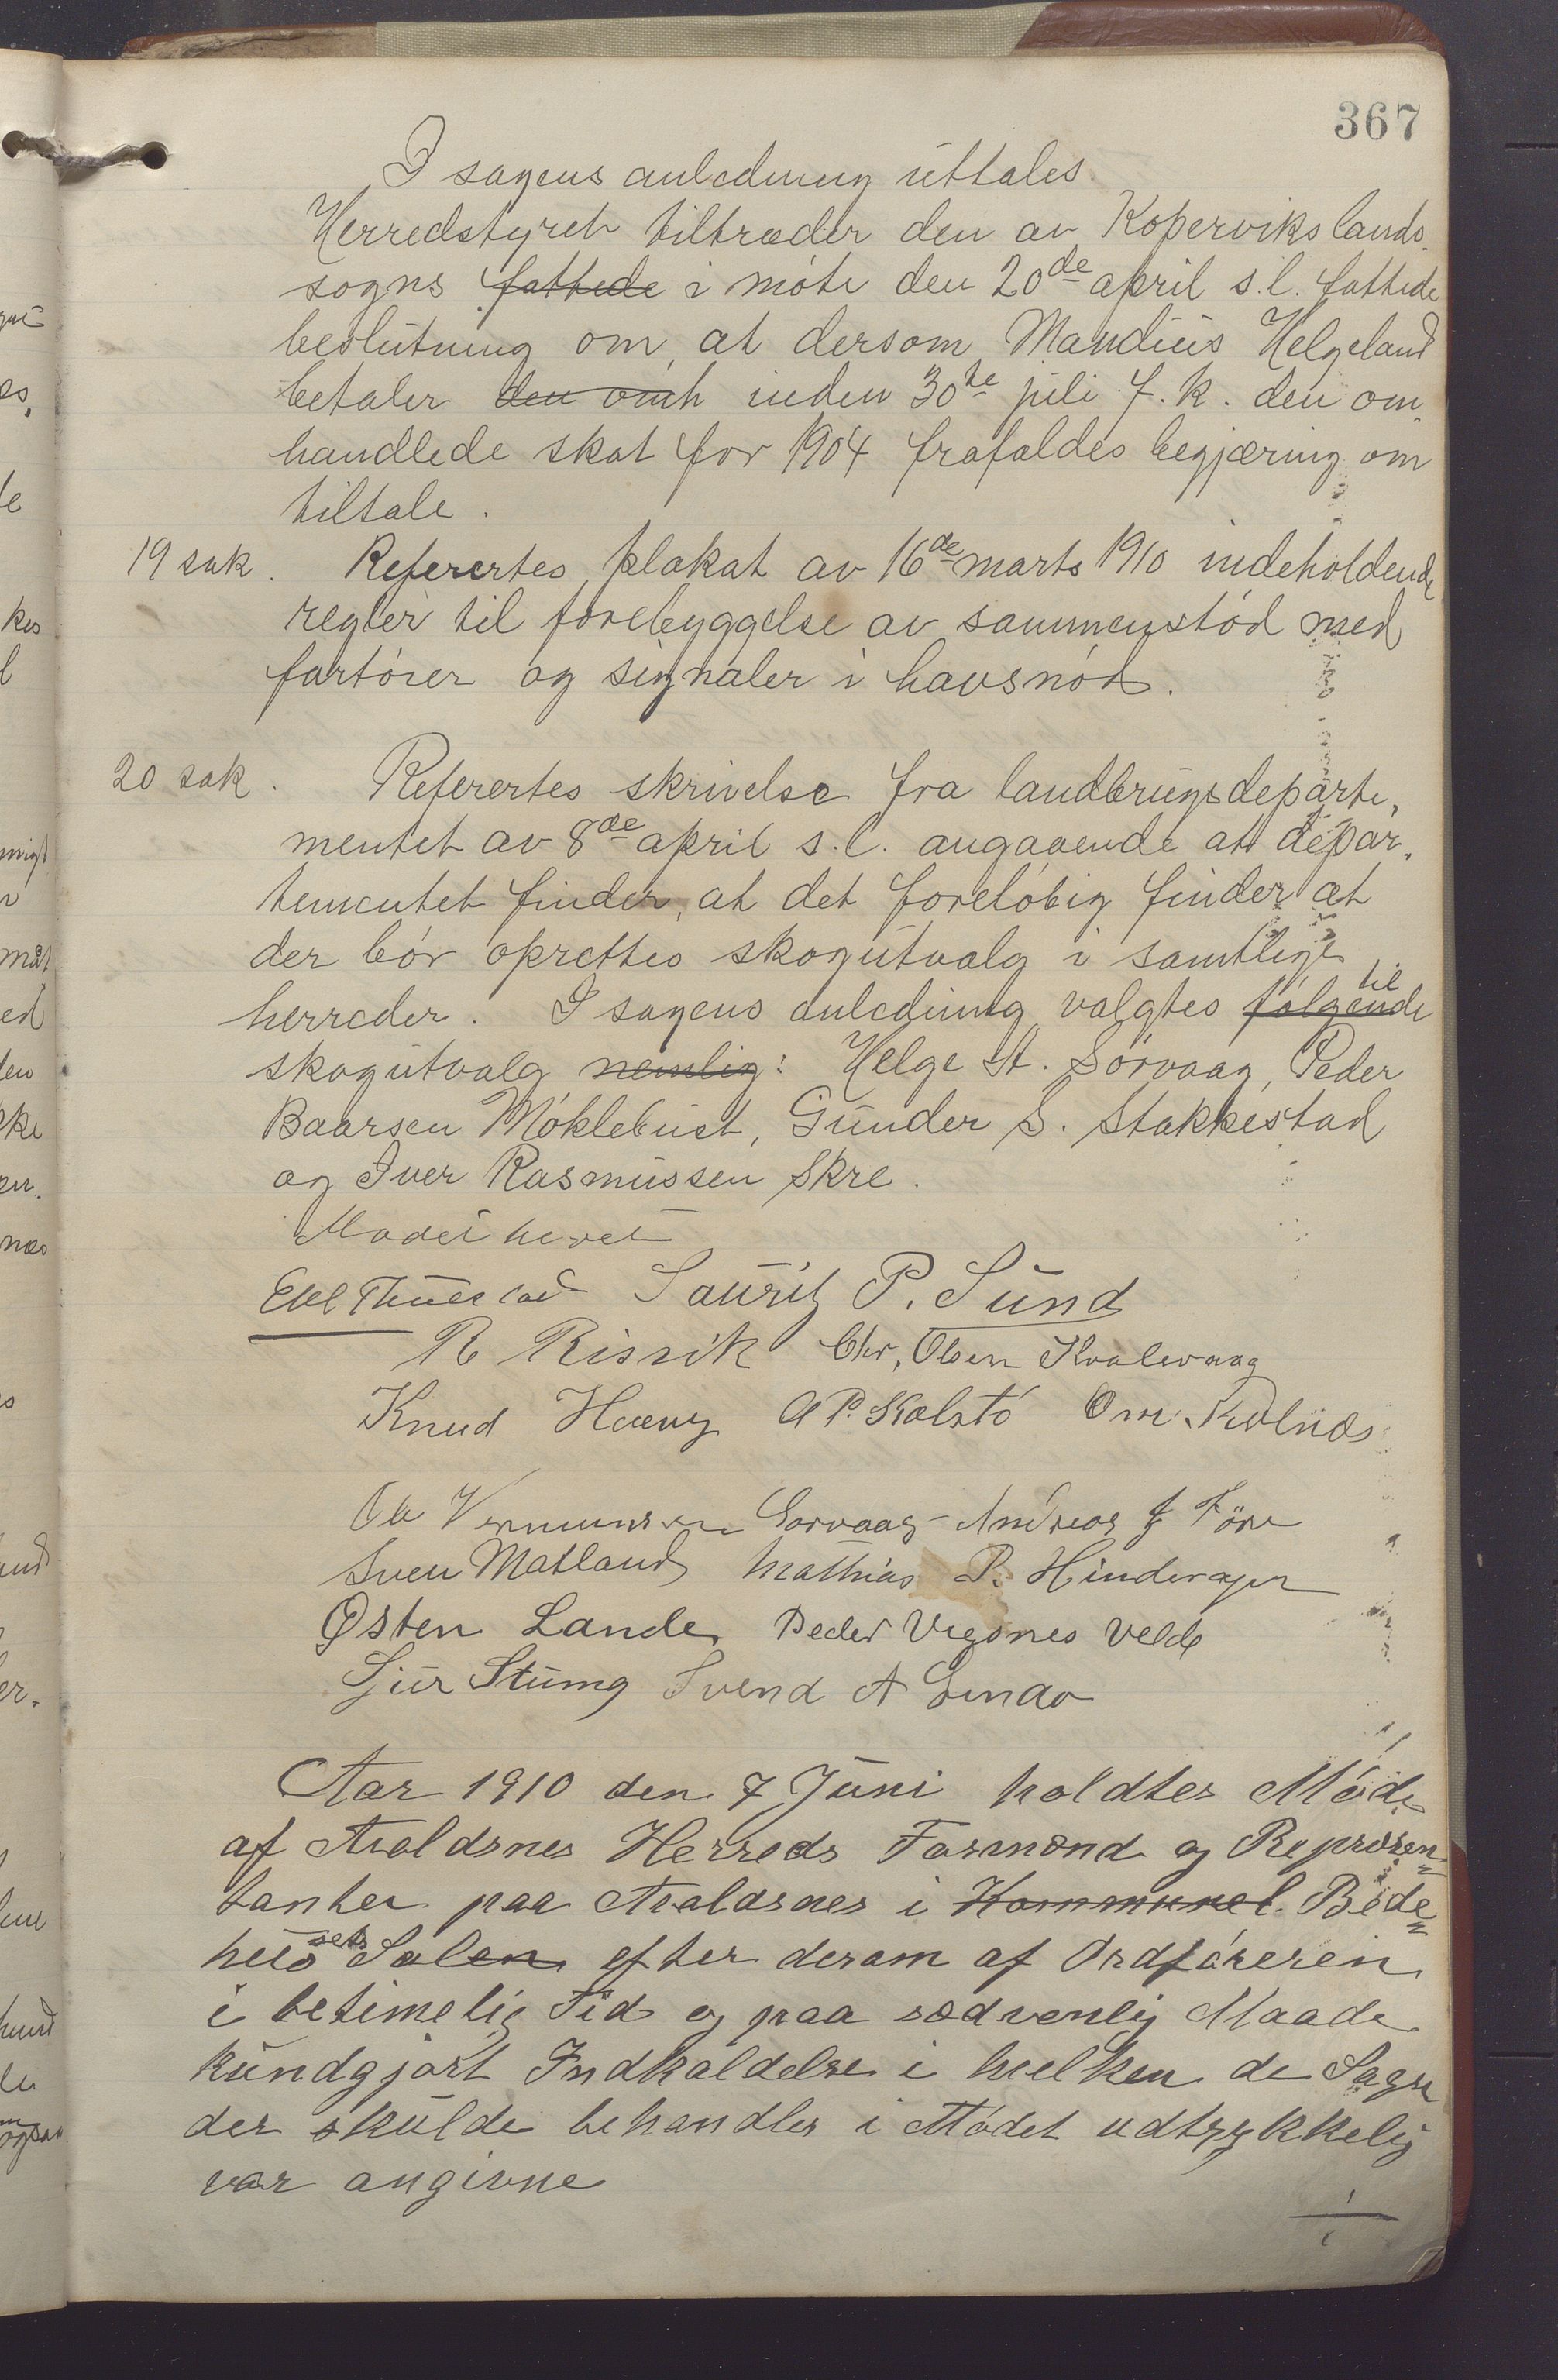 367
I sagens anledning uttales.
Herredstyret tiltræder den av Koperviks lands-
sogns fattede i möte den 20de april s.l. fattede
beslutning om, at dersom Mandius Helgeland
betaler den omh inden 30te juli f.k. den om-
handlede skat for 1904 frafaldes begjæring om
tiltale.
19 sak. Referertes plakat av 16de marts 1910 indeholdende
regler til forebyggelse av sammenstöd med
fartöier og signaler i havsnöd.
20 sak. Referertes skrivelse fra landbrugsdeparte-
mentet av 8de april s.l. angaaende at depar-
tementet finder, at det forelöbig finder at
der bör oprettes skogutvalg i samtlige
herreder. I sagens anledning valgtes følgende til
skogutvalg nemlig: Helge St. Sörvaag, Peder
Baarsen Möklebust, Gunder S. Stakkestad
og Iver Rasmussen Skre.
Mödet hevet
Laurits P. Sund
R Chr. Olsen Kvalevaag
Knud Haavg A P. Kolstö
Ola Sörvaag Andreas J
Sven Matland Mathias P.
Østen Lande Peder Velde
Sjur Stumg Svend A
Aar 1910 den 7 Juni holdtes Möde
af Avaldsnes Herreds Formænd og Repræsen-
tanter paa Avaldsnes i Kommunel Bede-
husets Salen efter derom af Ordföreren
i betimelig Tid og paa sædvanlig Maade
kundgjort Indkaldelse i hvilken de Sager
der skulde behandles i Mödet udtrykkelig
var angivne